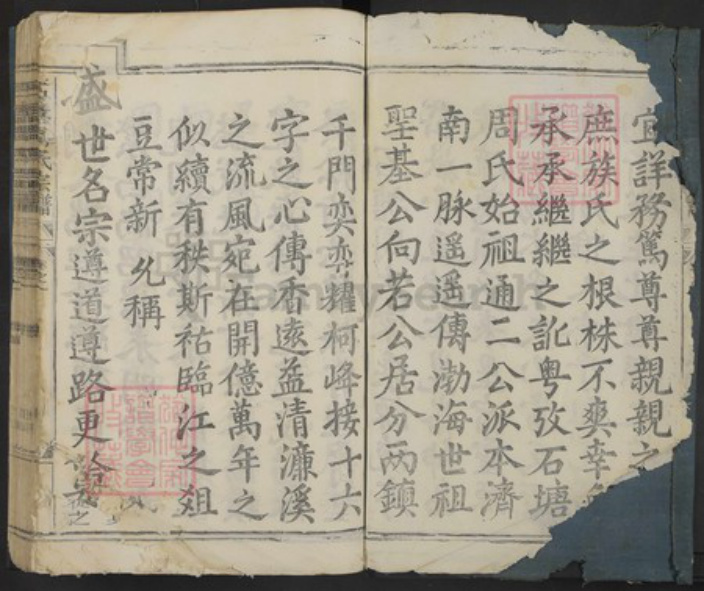 宜詳務篤尊尊親親之
庶族氏之根株不爽幸
承承繼繼之訛粤攷石塘
周氏始祖通二公派本濟
南一脉遥遥傳渤海世祖
聖基公向若公居分两鎮
千門奕奕耀柯峰接十六
字之心傳香遠益清濂溪
之流風宛在開億萬年之
似續有秩斯祜臨江之俎
豆常新允稱
盛世名宗遵道遵路更
氏宗譜